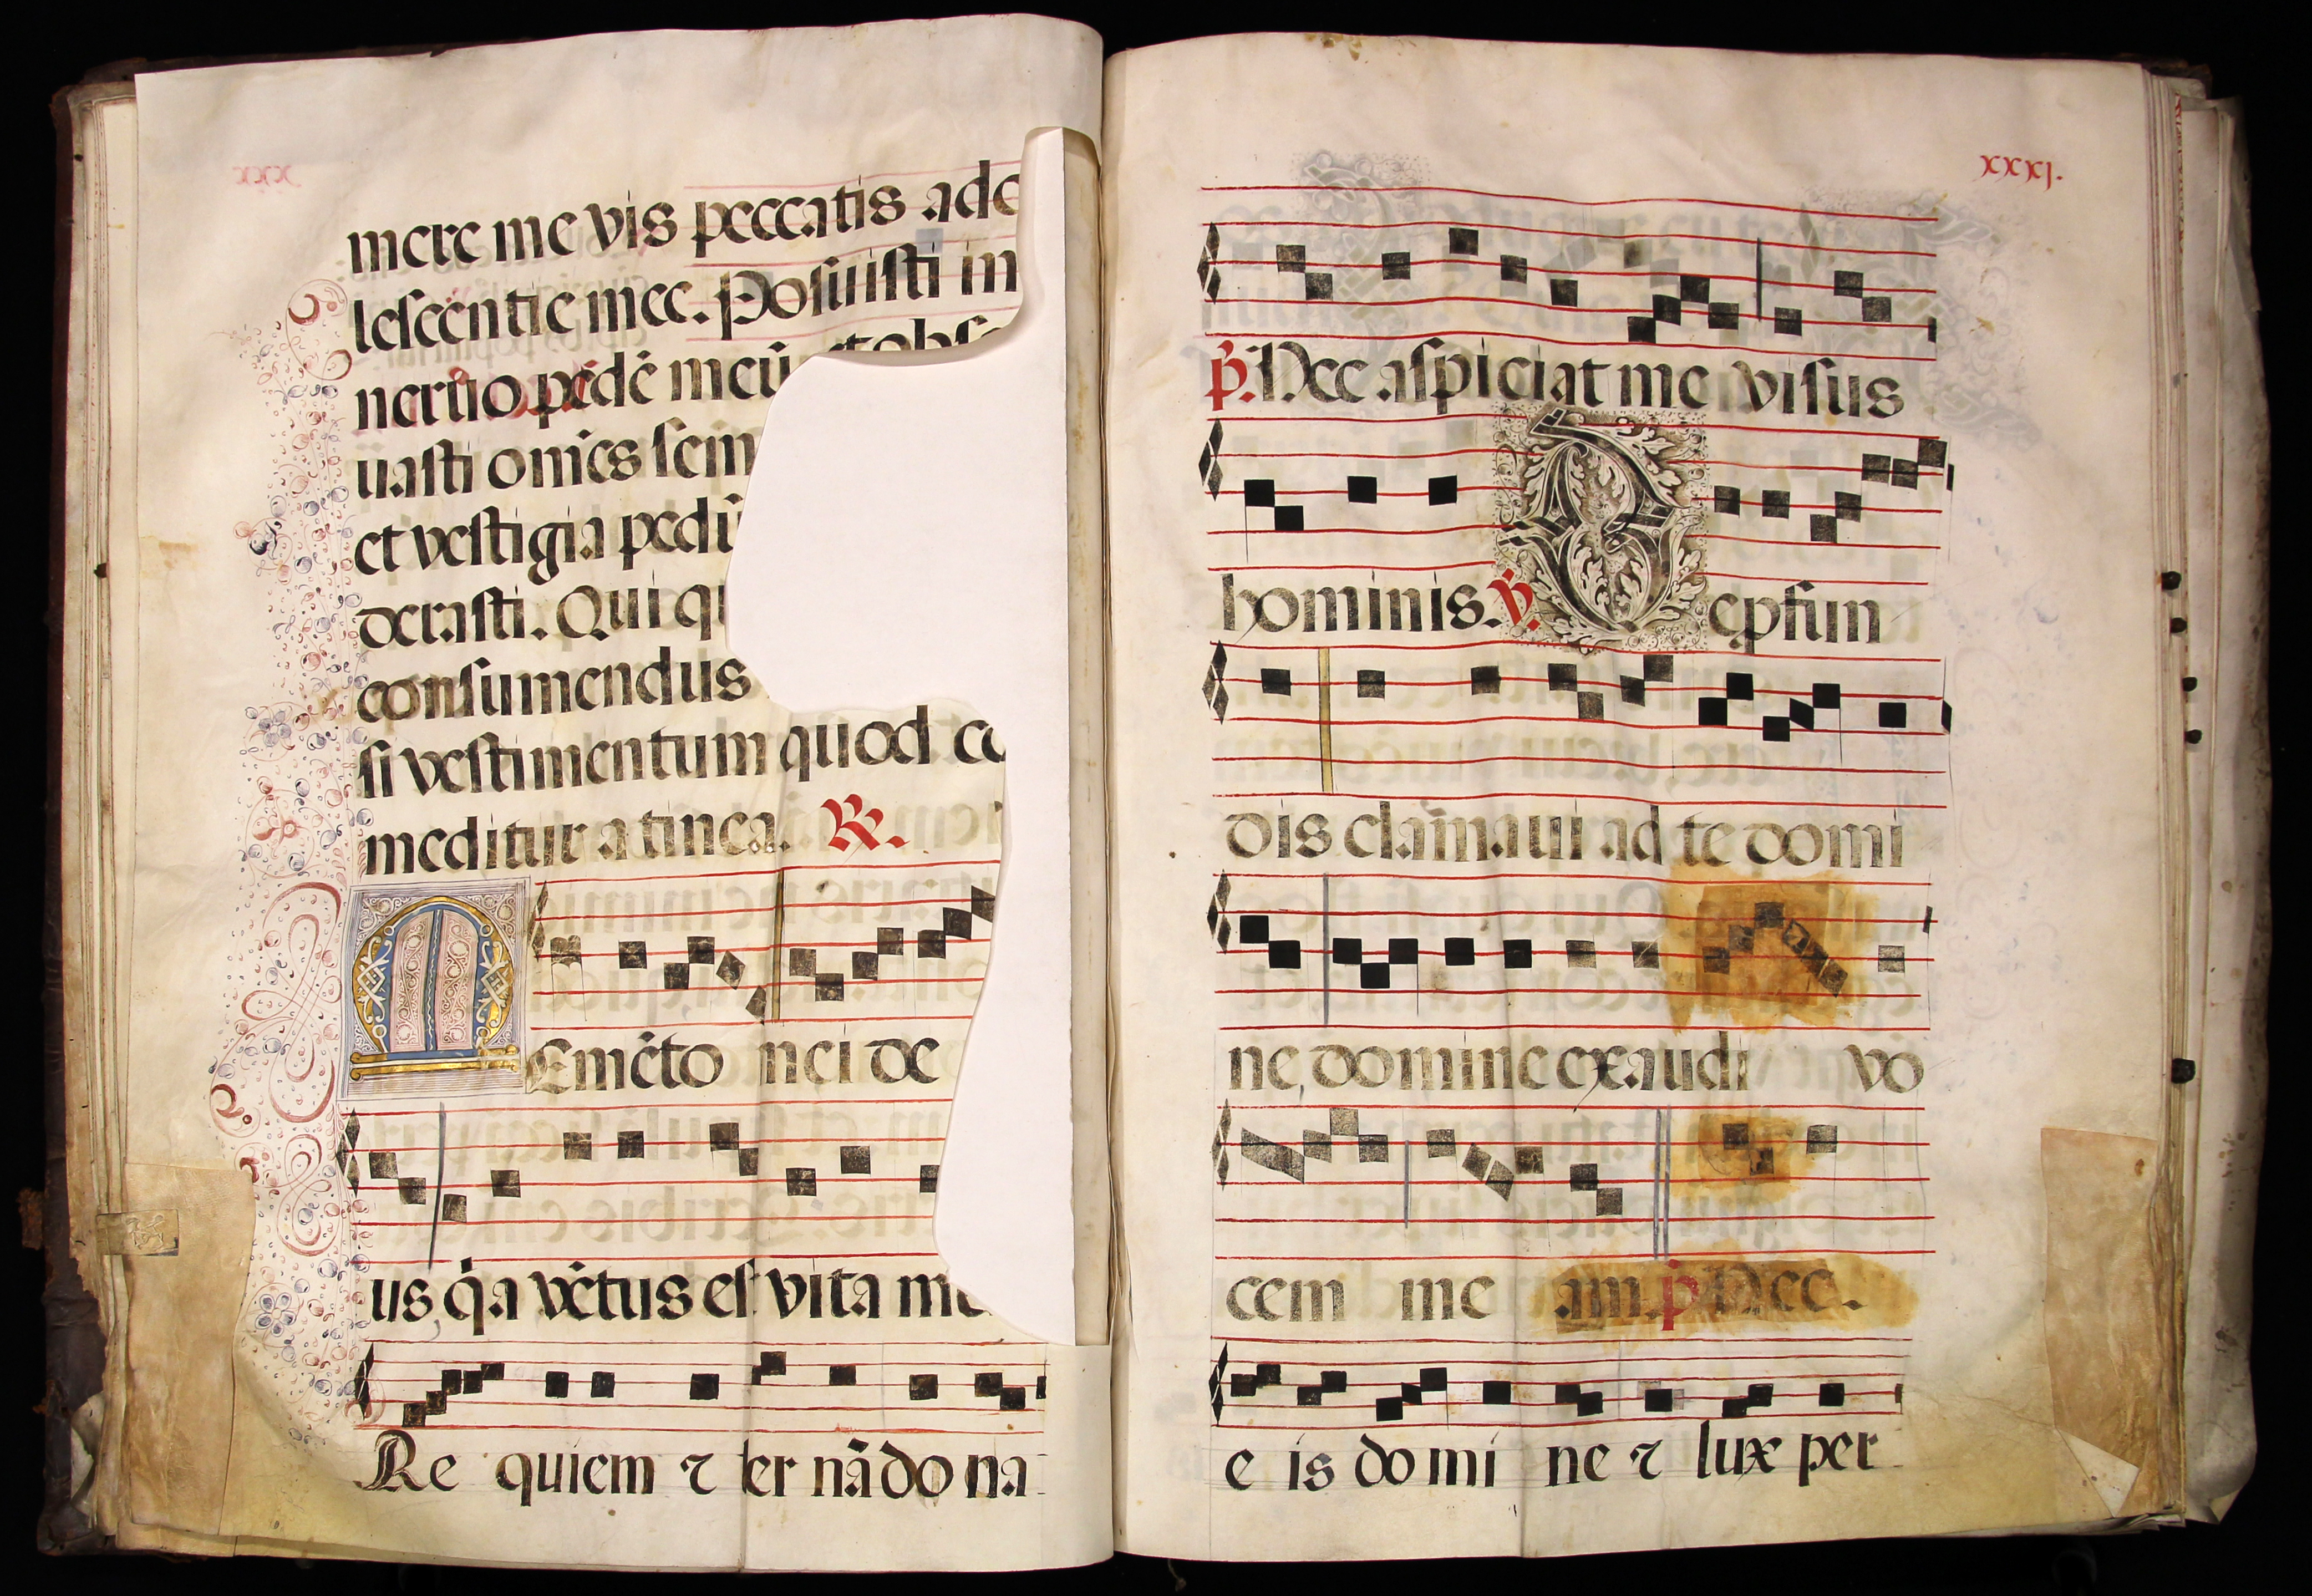 mere me vis peccatis ado
lescentie mee. Posuisti in
neruo pedē meū et obse
uasti omēs sem
et vestigia pedū
derasti. Qui qu
consumendus
si vestimentum quod co
meditur a tinea. R.
Memēto mei de
us, q̇a vētus est vita me
Re quiem eter nā do na
xxxj.
p̄. Nec aspiciat me visus
hominis. v̄. De ꝓfun
dis clamaui ad te domi
ne, domine exaudi vo
cem me am. p̄ Nec.
e is do mi ne ꝛ lux per